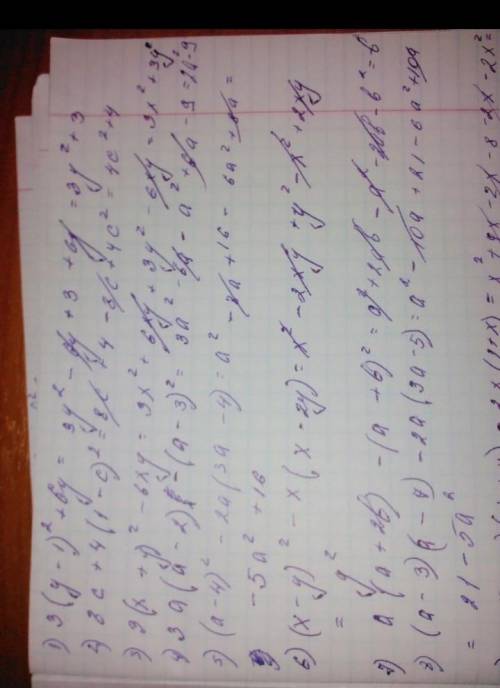 1) 3(y-1)²+6y = 3y²-6y+3+6y = 3y²+3
2) 8c+4(1-c)² = 8c+4-8c+4c² = 4c²+4
3) 3(x+y)²-6xy = 3x²+6xy+3y²-6xy = 3x²+3y²
4) 3a(a-2)-(a-3)² = 3a²-6a-a²+6a-9 = 2a²-9
5) (a-4)²-2a(3a-4) = a²-8a+16-6a²+8a =
-5a²+16
6) (x-y)²-x(x-2y) = x²-2xy+y²-x²+2xy
= y²
7) a(a+2b)-(a+b)² = a²+2ab-a²-2ab-b² = b
8) (a-3)(a-7)-2a(3a-5) = a²-10a+21-6a²+10a
= 21-5a²